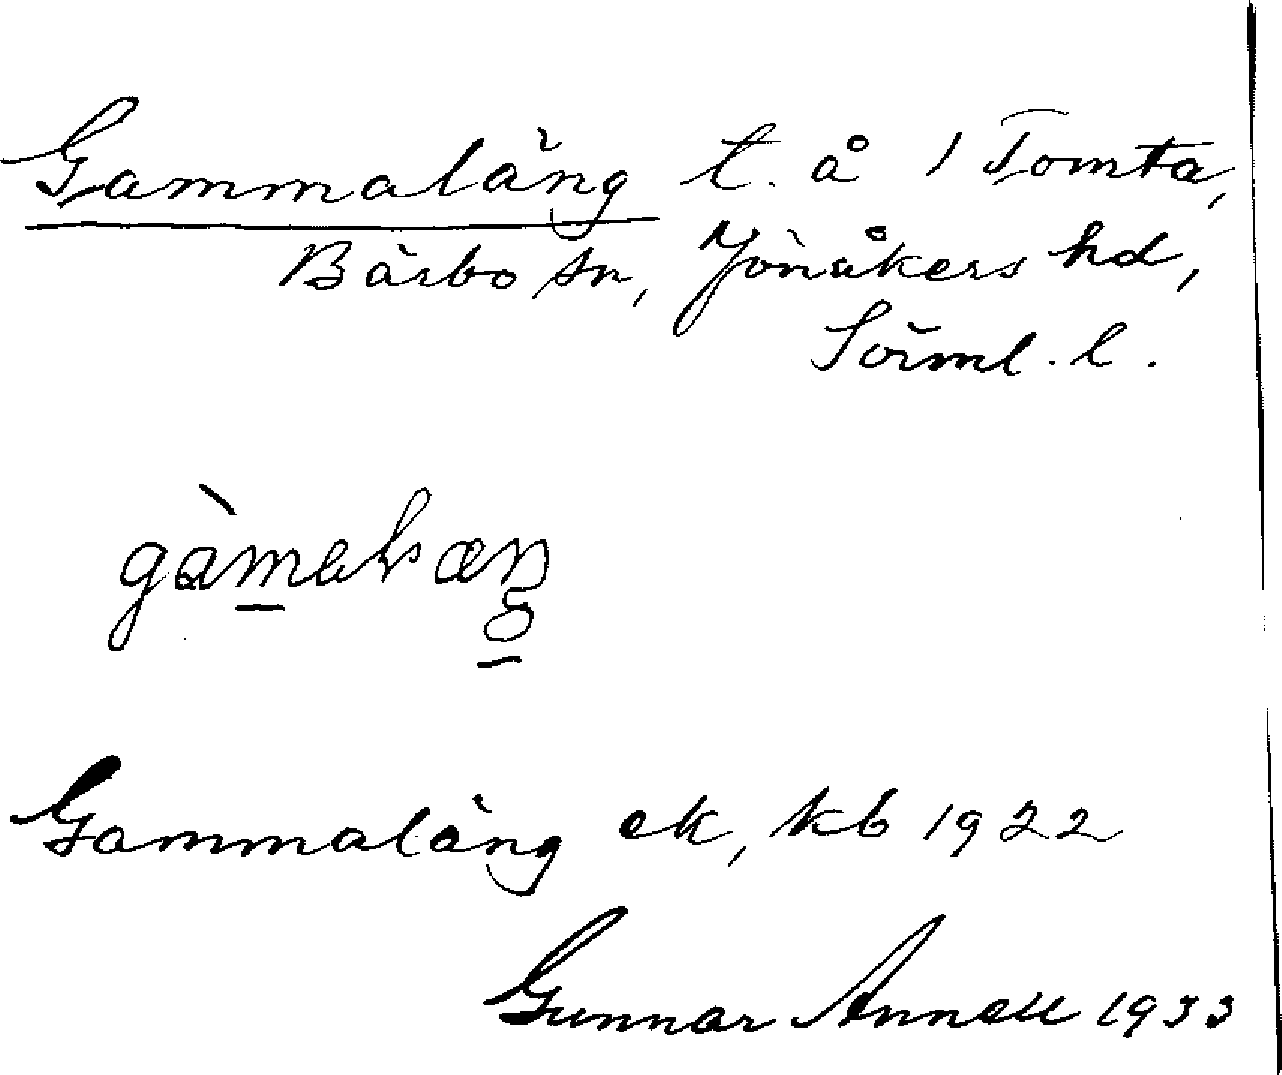 Gammaläng t. å 1 Tomta,
Bärbo sn, Jönåkers hd,
Sörml. l.
Gammaläng ek, kb 1922
Gunnar Annell 1933